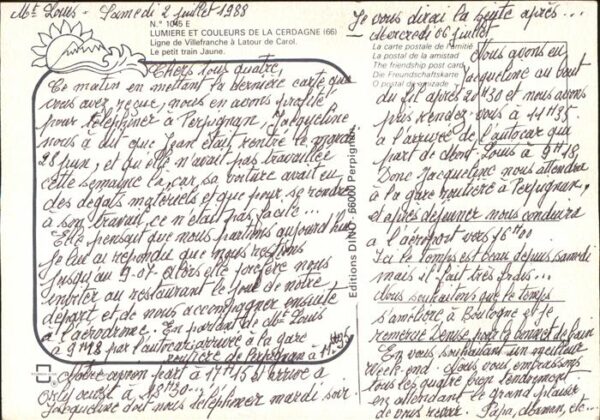 Mt Louis - Samedi 2 juillet 1988
N° 1045 E
LUMIERE ET COULEURS DE LA CERDAGNE (66)
Ligne de Villefranche à Latour de Carol.
Le petit train Jaune.
Chers tous quatre,
Ce matin en mettant la dernière carte que
vous avez reçue, nous en avons profité
pour téléphoner à Perpignan, Jacqueline
nous a dit que Jean était rentré le mardi
28 juin, et qu'elle n'avait pas travaillée
cette semaine là, car sa voiture avait eu
des dégats matériels et que pour se rendre
à son travail ce n'était pas facile...
Elle pensait que nous partions aujourd'hui
je lui ai répondu que nous restions
jusqu'au 9-07. Alors elle préfère nous
inviter au restaurant le jour de notre
départ et de nous accompagner ensuite
à l'aérodrome. En partant de Mt Louis
à 9H18 par l'autocar, arrivée à la gare
routière de Perpignan à 11H35
Notre avion part à 17H15 et arrive à
Orly ouest à 18H30...
Jacqueline doit nous téléphoner mardi soir
Editions DINO - 66000 Perpignan
Je vous dirai la suite après...
Mercredi 06 juillet
La carte postale de l'amitié
La postal de la amistad
The friendship post card
Die Freundschaftskarte
O postal de amizade
Nous avons eu
Jacqueline au bout
du fil après 20H30 et nous avons
pris rendez-vous à 11H35.
à l'arrivée de l'autocar qui
part de Mont-Louis à 9H18.
Donc Jacqueline nous attendra
à la gare routière à Perpignan,
et après déjeuner nous conduira
à l'aéroport vers 16H00
Ici le temps est beau depuis samedi
mais il fait très frais...
Nous souhaitons que le temps
s'améliore à Boulogne et je
remercie Denise pour le bonnet de bain
En vous souhaitant un meilleur
week-end. Nous vous embrassons
tous les quatre bien tendrement
en attendant le grand plaisir
de vous revoir. Papa, Maman, etc...